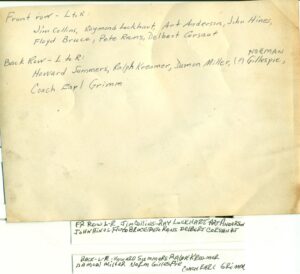 Front row - L to R
Jim Collins, Raymond Lockhart, Art Anderson, John Hines,
Floyd Bruce, Pete Rans, Delbert Corsaut
Back Row - L to R:
NORMAN
Howard Sommers, Ralph Kreamer, Damon Miller, (?) Gillespie,
Coach Earl Grimm
FR ROW L-R JIM COLLINS-RAY LOCKHART-ART ANDERSON
JOHN HINES FLOYD BRUCE PETE RANS DELBERT CORSAUT
BACK-L-R HOWARD SOMMERS RALPH KREAMER
DAMON MILLER NORM GILLESPIE
COACH EARL GRIMM